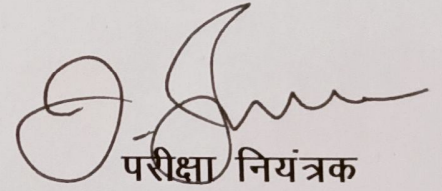 परीक्षा नियंत्रक